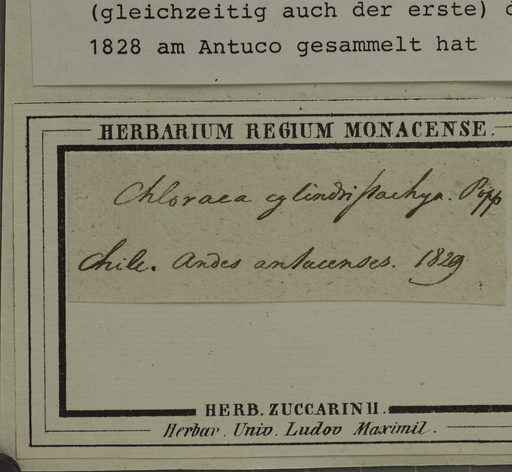 (gleichzeitig auch der erste)
1828 am Antuco gesammelt hat
HERBARIUM REGIUM MONACENSE.
Chloraea cylindristachya. Pöpp
Chile. Andes antucenses. 1829
HERB. ZUCCARINII.
Herbar. Univ. Ludov Maximil.